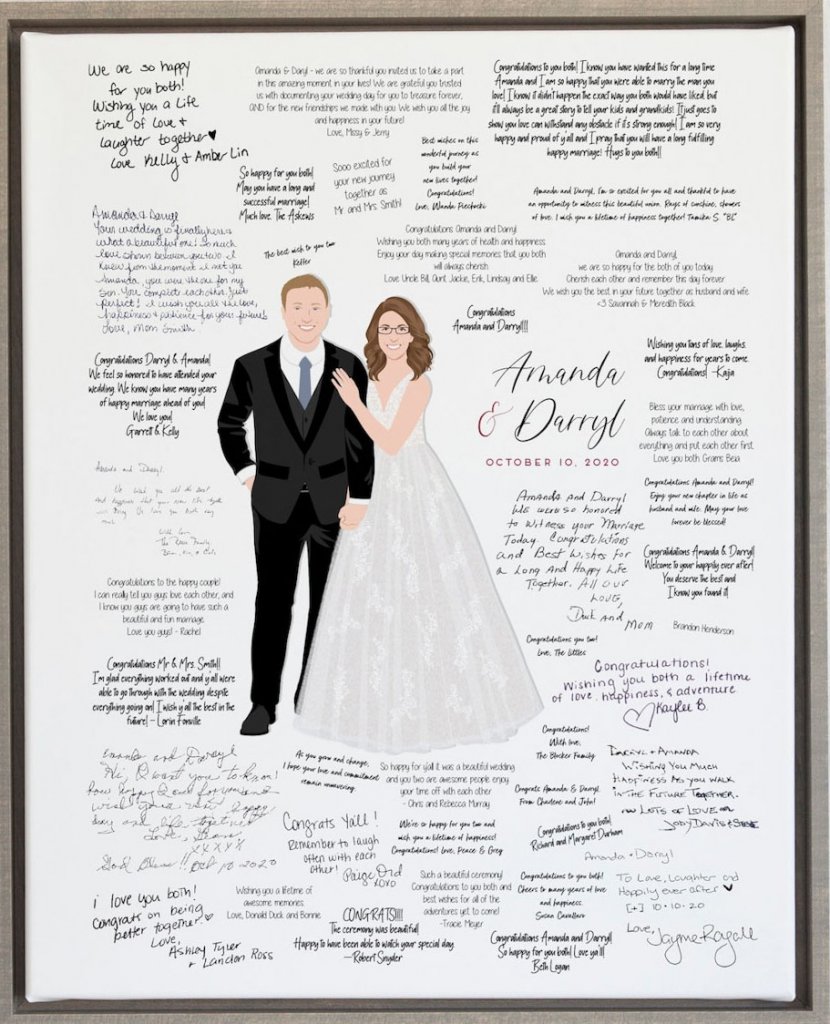 We are so happy
for you both!
Wishing you a Life
time of Love &
Laughter together♥
Love Kelly & Amber Lin
Amanda & Daryl - we are so thankful you invited us to take a part
in this amazing moment in your lives! We are grateful you trusted
us with documenting your wedding day for you to treasure forever,
AND for the new friendships we made with you. We wish you all the joy
and happiness in your future!
Love, Missy & Jerry
Congratulations to you both! I know you have wanted this for a long time
Amanda and I am so happy that you were able to marry the man you
love! I know it didn't happen the exact way you both would have liked but
it'll always be a great story to tell your kids and grandkids! It just goes to
show you love can withstand any obstacle if it's strong enough! I am so very
happy and proud of y'all and I pray that you will have a long fulfilling
happy marriage! Hugs to you both!!
So happy for you both!
May you have a long and
successful marriage!
Much love. The Askews
Sooo excited for
your new journey
together as
Mr and Mrs Smith!
Best wishes on this
wonderful journey as
you build your
new lives together!
Congratulations!
Love, Wanda Piestocki
Amanda and Darryl, I'm so excited for you all and thankful to have
an opportunity to witness this beautiful union. Rays of sunshine, showers
of love. I wish you a lifetime of happiness together! Tamika S. "BL"
Amanda & Darryl
Your wedding is finally here &
what a beautiful one! So much
love shown between you two. I
knew from the moment I met you
Amanda, you were the one for my
son. You complete each other. Just
perfect! I wish you all the love,
happiness & patience for your future
Love, Mom Smith
The best wish to you two
Keller
Congratulations Amanda and Darryl
Wishing you both many years of health and happiness.
Enjoy your day making special memories that you both
will always cherish.
Love Uncle Bill, Aunt Jackie, Erik, Lindsay and Elle
Amanda and Darryl,
we are so happy for the both of you today.
Cherish each other and remember this day forever
We wish you the best in your future together as husband and wife.
<3 Savannah & Meredith Black
Congratulations
Amanda and Darryl!!!!
Congratulations Darryl & Amanda!
We feel so honored to have attended your
wedding. We know you have many years
of happy marriage ahead of you!
We love you!
Garrett & Kelly
Amanda
& Darryl
OCTOBER 10, 2020
Wishing you tons of love, laughs,
and happiness for years to come.
Congratulations! -Kaja
Bless your marriage with love,
patience and understanding.
Always talk to each other about
everything and put each other first.
Love you both Grams Beia
Amanda and Darryl,
We wish you all the best
With Love
The Rose Family
Congratulations Amanda and Darryl!
Enjoy your new chapter in life as
husband and wife. May your love
forever be blessed!
Amanda and Darryl
We were so honored
to witness your Marriage
Today. Congratulations
and Best Wishes for
a Long And Happy Life
Together. All our
Love,
Duck and Mom
Congratulations Amanda & Darryl!
Welcome to your happily ever after!
You deserve the best and
I know you found it!
Brandon Henderson
Congratulations to the happy couple!
I can really tell you guys love each other, and
I know you guys are going to have such a
beautiful and fun marriage.
Love you guys! - Rachel
Congratulations you two!
Love, The Littles
Congratulations Mr & Mrs. Smith!!
I'm glad everything worked out and y'all were
able to go through with the wedding despite
everything going on! I wish y'all the best in the
future! - Corin Fonville
Congratulations!
Wishing you both a lifetime
of love, happiness, & adventure.
♡Kaylee B.
Congratulations!
With love,
The Blocker Family
Amanda and Darryl
Hi, I want you to know
how happy I am for you and
wish you a very happy
day and life together
Love, Grams
XXXXX
God Bless!! Oct 10 2020
As you grow and change,
I hope your love and commitment
remain unwavering.
So happy for y'all it was a beautiful wedding
and you two are awesome people enjoy
your time off with each other
- Chris and Rebecca Murray
Darryl + Amanda
Wishing You Much
Happiness As you walk
in the Future Together.
Lots of Love
Jody Davis + Steve
Congrats Amanda & Darryl,
From Charlene and John!
Congrats Y'all!
Remember to laugh
often with each
other!
Paige Ord
xoxo
We're so happy for you two and
wish you a lifetime of happiness!
Congratulations! Love, Peace & Grey
Congratulations to you both!
Richard and Margaret Durham
Amanda + Darryl
To Love, Laughter and
Happily ever after ♥
[+] 10-10-20
Love,
Jayme Rayall
i love you both!
Congrats on being
better together♡
Love,
Ashley Tyler
+ Landon Ross
Wishing you a lifetime of
awesome memories.
Love, Donald Duck and Bonnie
Such a beautiful ceremony!
Congratulations to you both and
best wishes for all of the
adventures yet to come!
-Tracie Meyer
Congratulations to you both!
Cheers to many years of love
and happiness.
Susan Cavallaro
CONGRATS!!!!!
The ceremony was beautiful!
Happy to have been able to watch your special day.
-Robert Snyder
Congratulations Amanda and Darryl!
So happy for you both! Love ya'll!
Beth Logan